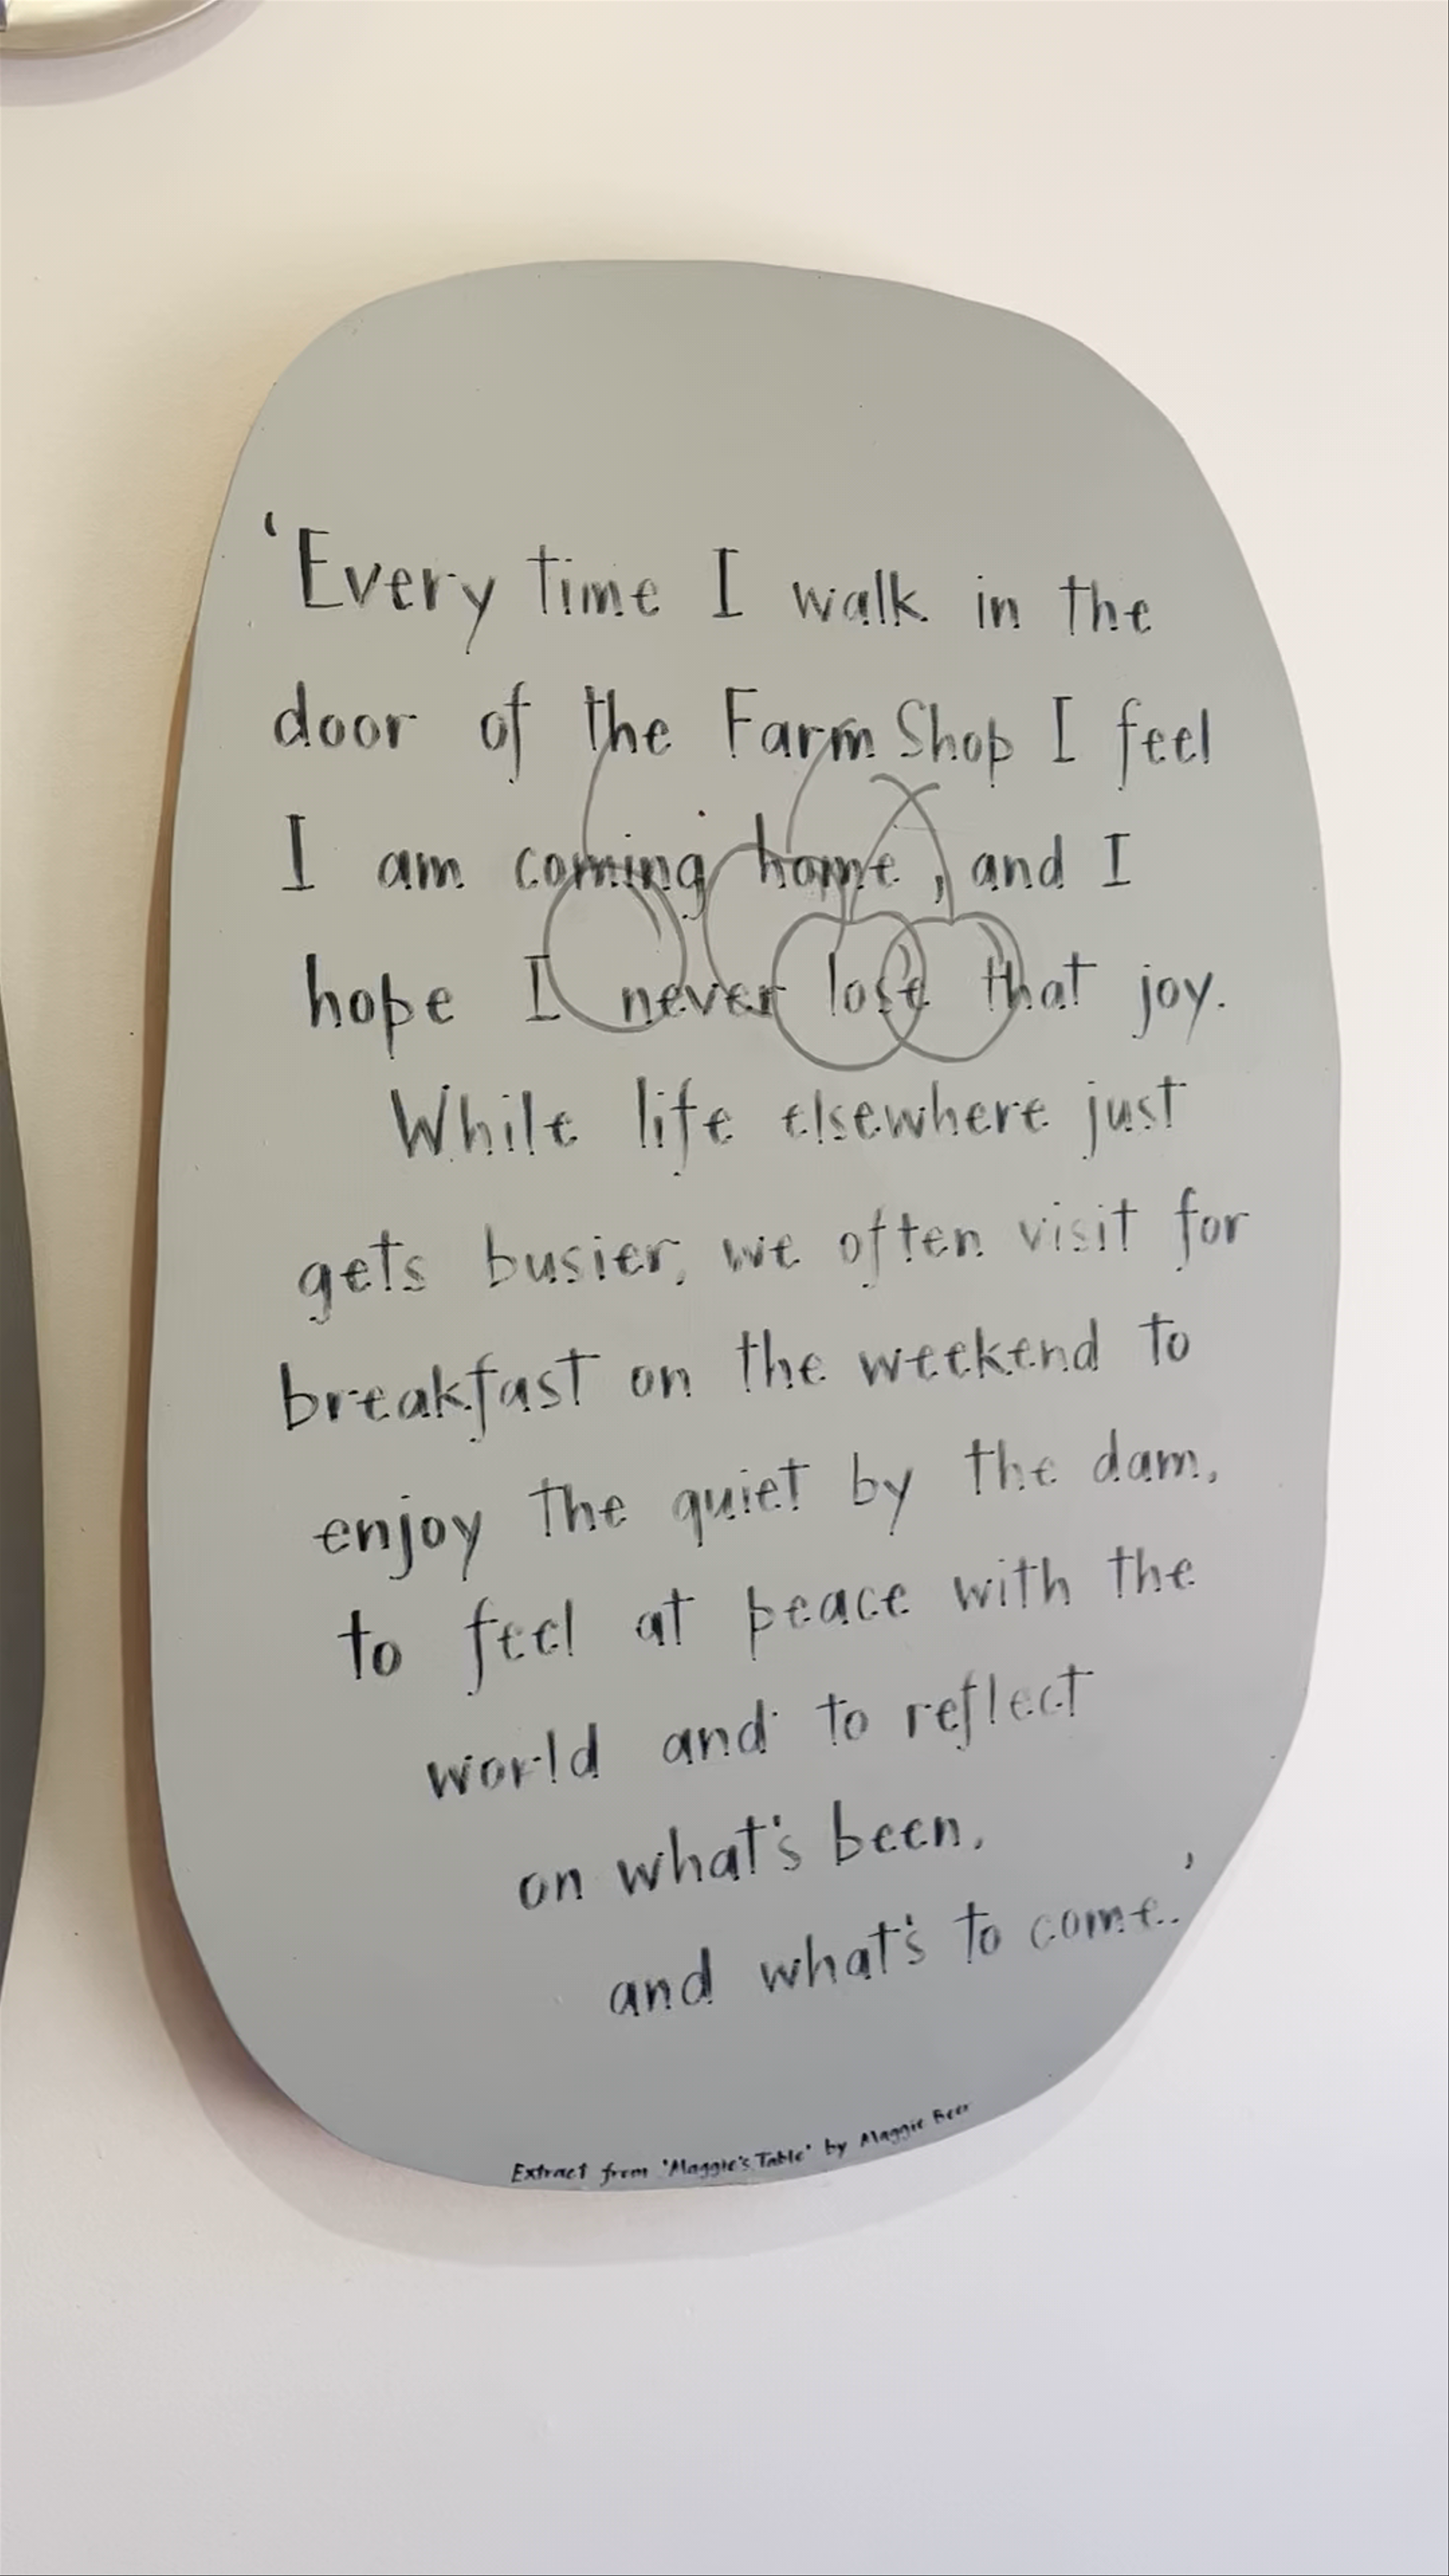 ‘Every time I walk in the
door of the Farm Shop I feel
I am coming home, and I
hope I never lose that joy.
While life elsewhere just
gets busier, we often visit for
breakfast on the weekend to
enjoy the quiet by the dam,
to feel at peace with the
world and to reflect
on what's been,
and what's to come..’
Extract from 'Maggie's Table' by Maggie Beer